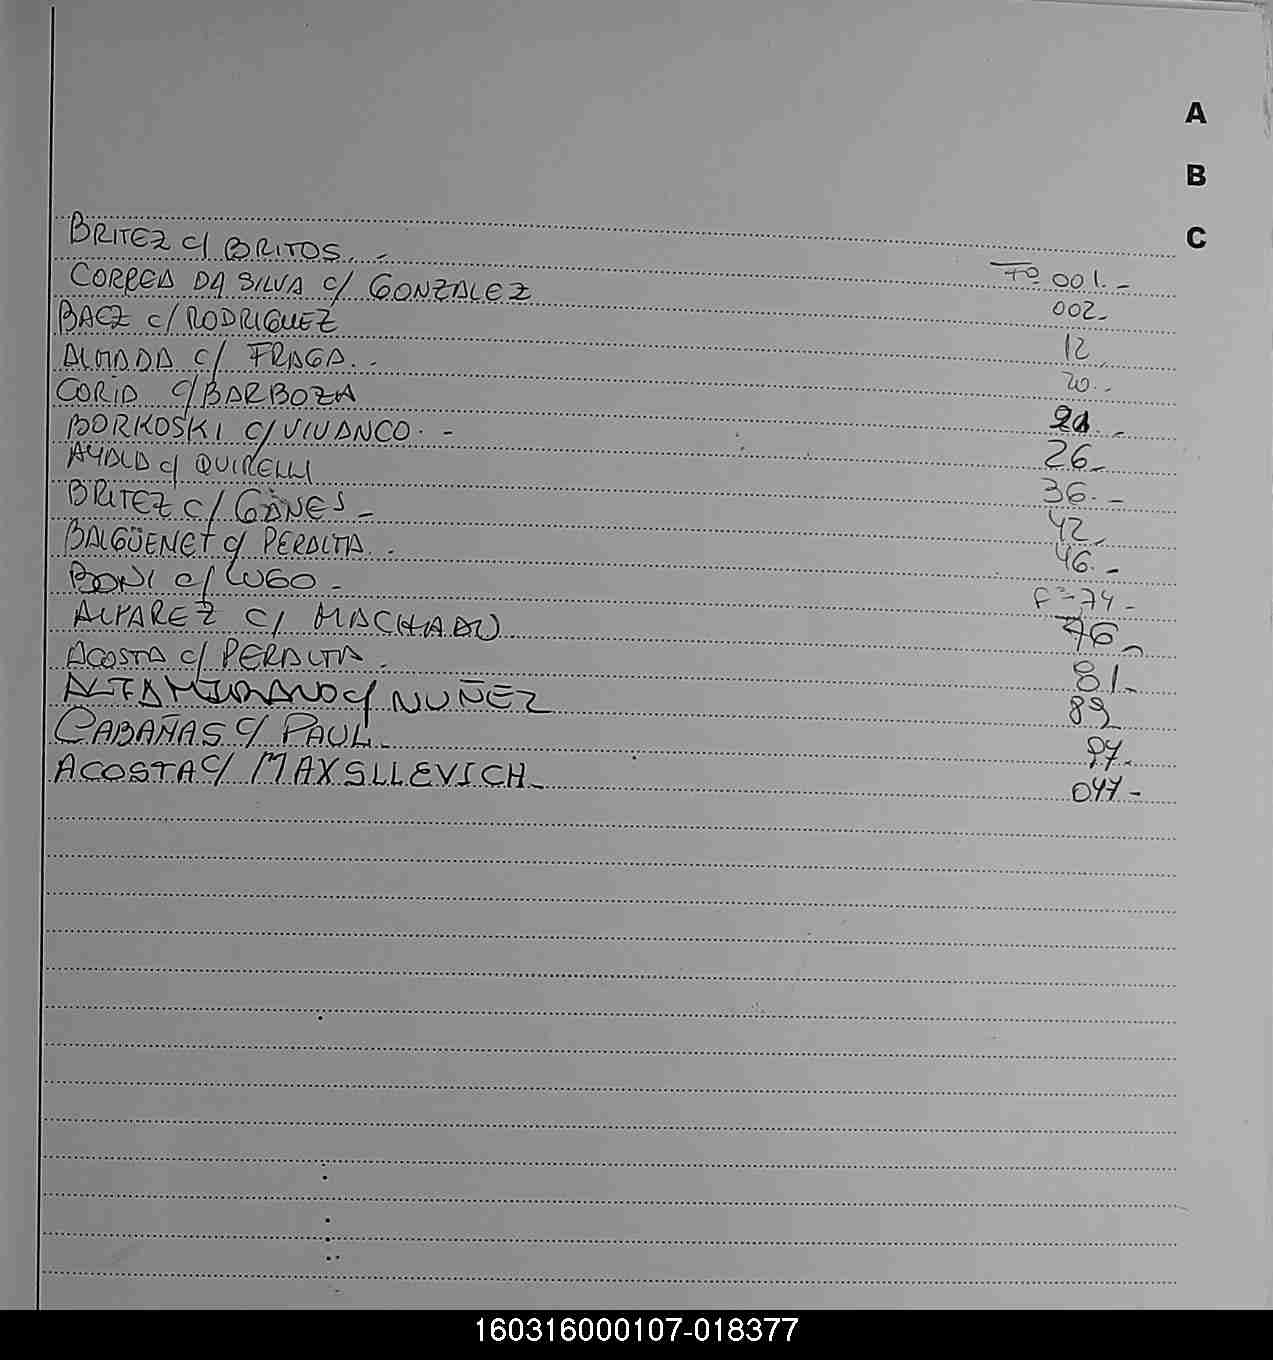 A
B
C
BRITEZ c/ BRITOS. - Fº 001.-
CORREA DA SILVA c/ GONZALEZ 002-
BAEZ c/ RODRIGUEZ 12
ALMADA c/ FRAGA.- 20.-
CORIA c/ BARBOZA 21 -
BORKOSKI c/ VIVANCO. - 26-
AYALA c/ QUIRELLI 36.-
BRITEZ c/ GÄNES - 42-
BALGÜENET c/ PERALTA.- 46.-
BONI c/ LUGO - Fº 74-
ALVAREZ c/ MACHADO 76-
ACOSTA c/ PERALTA. 81-
ALTAMIRANO c/ NUÑEZ 89
CABAÑAS C/ PAUL- 97.
ACOSTA C/ MAXSLLEVICH- 047-
160316000107-018377